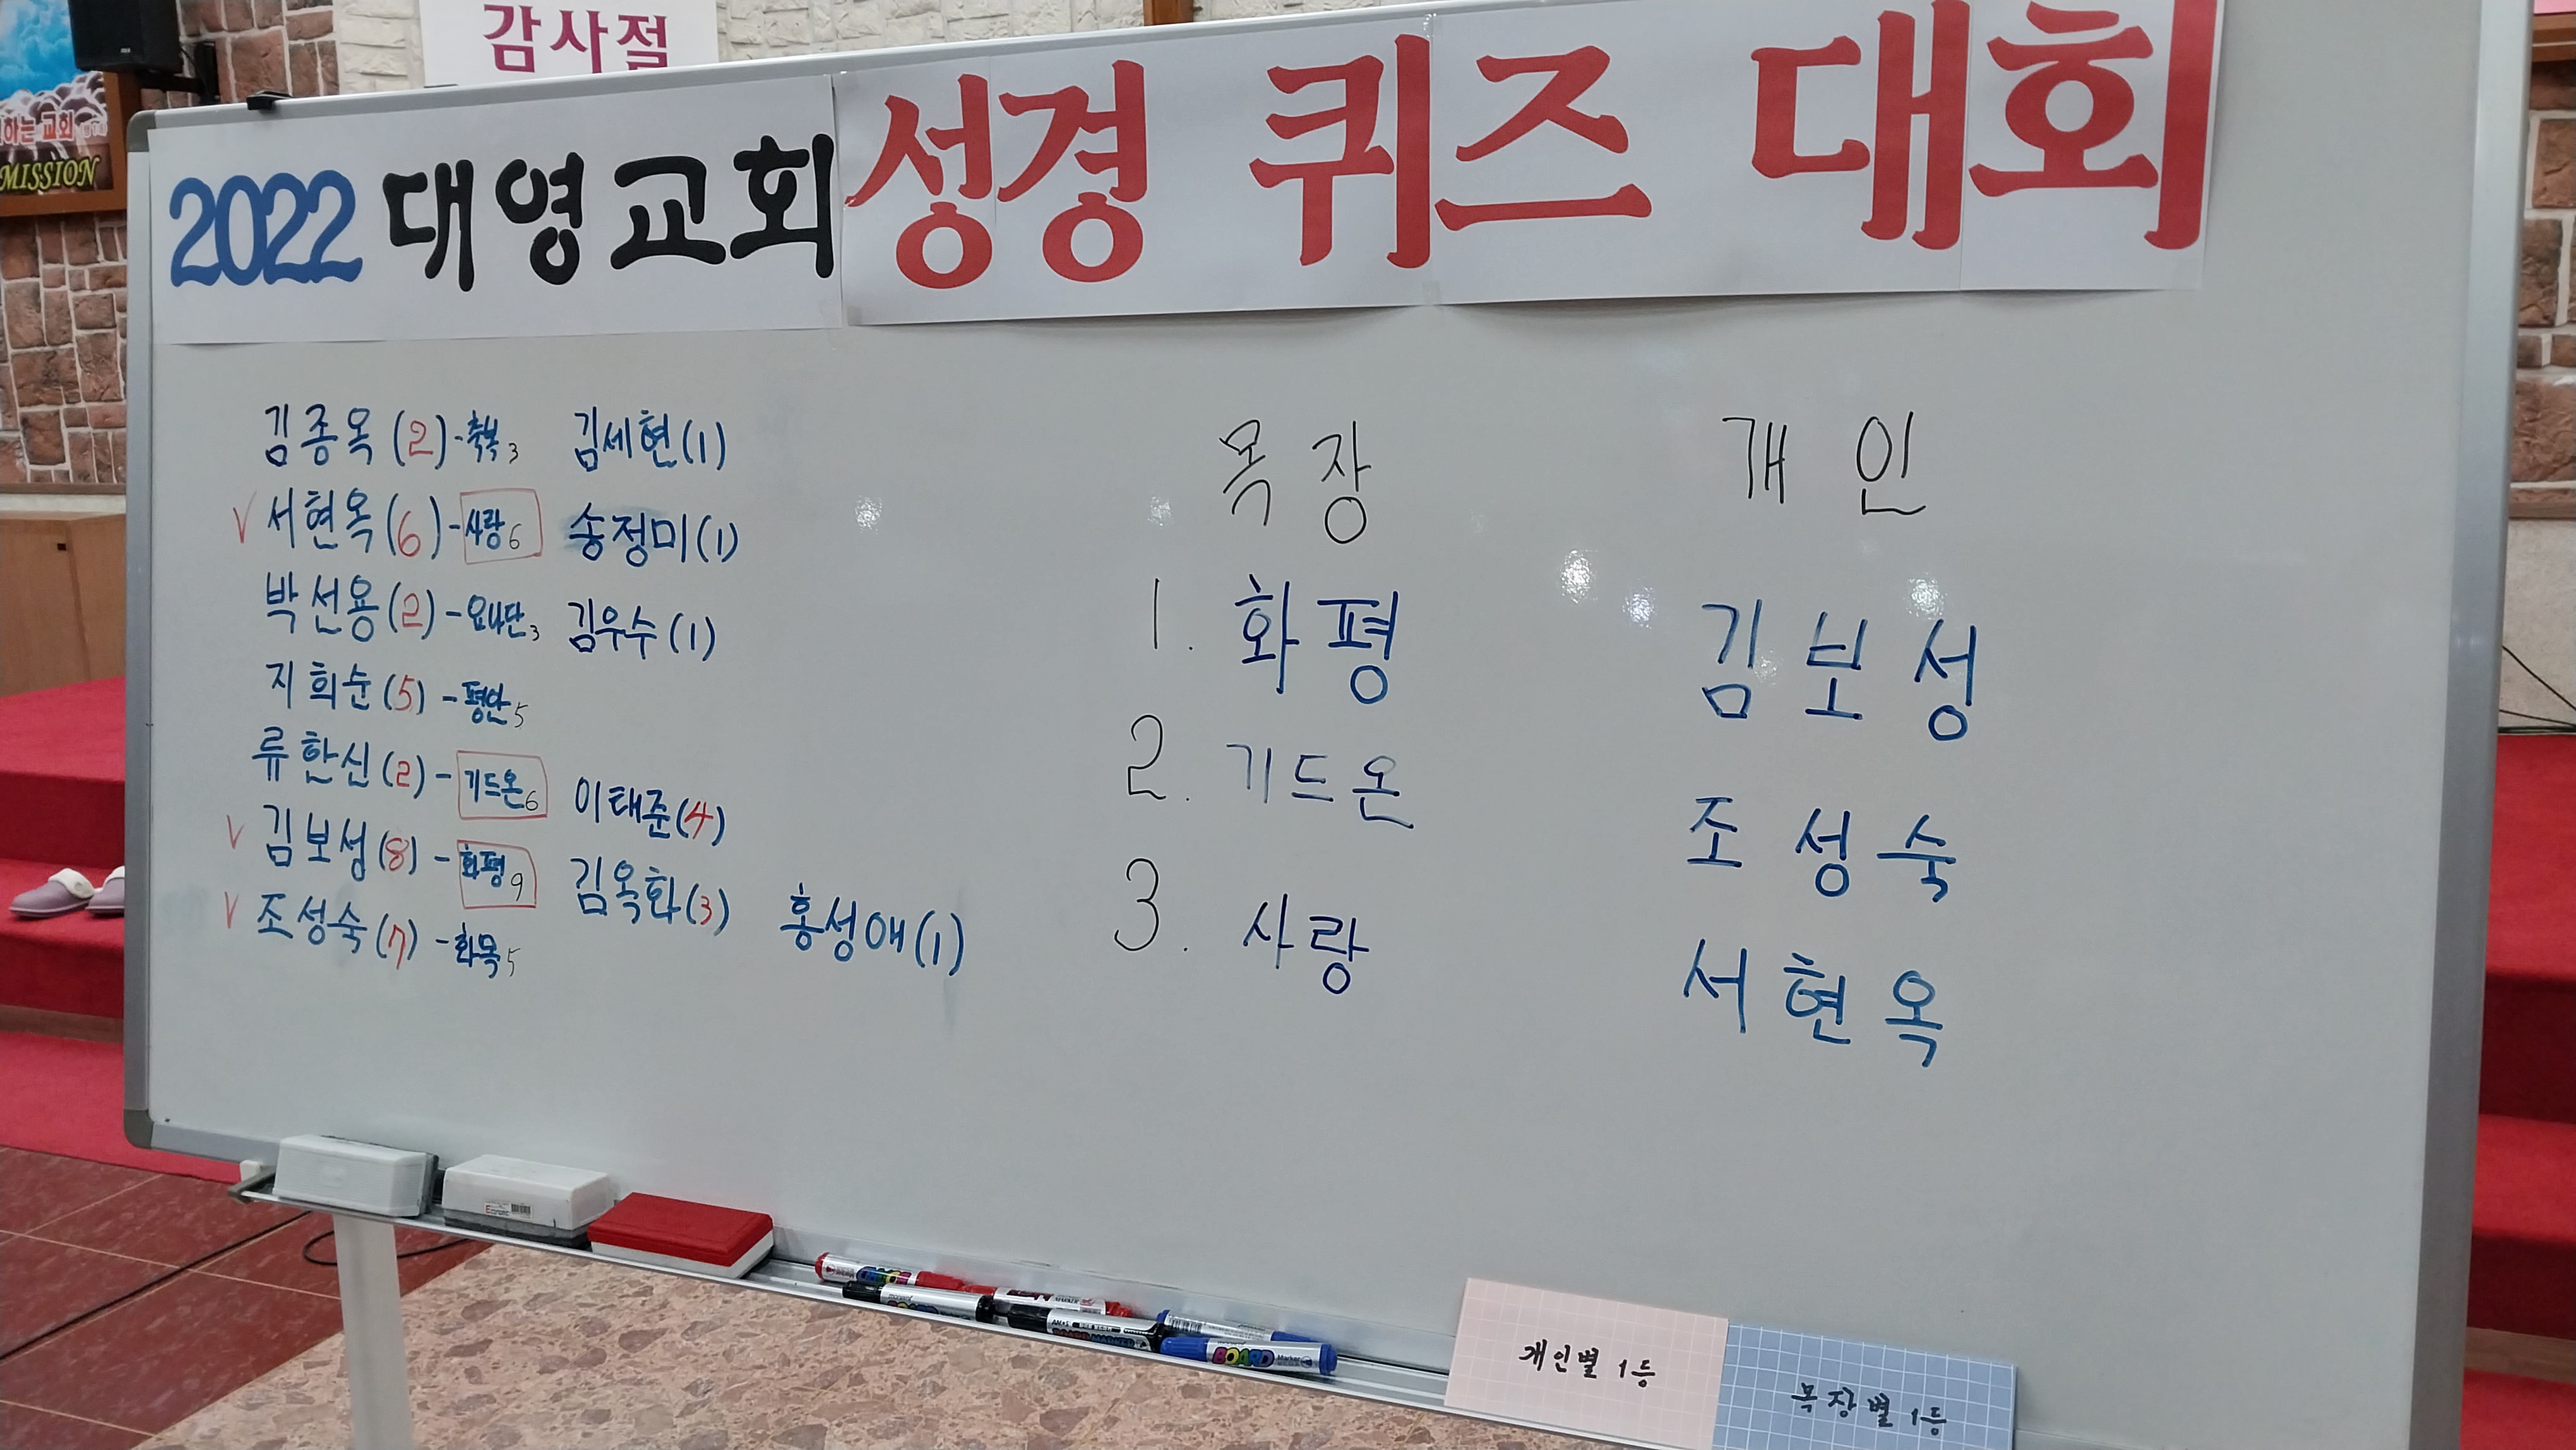 감사절
하는 교회
MISSION
2022 대영교회 성경 퀴즈 대회
김종옥 (2) - 축복 3 김세현 (1)
√ 서현옥 (6) - 사랑 6 송정미 (1)
박선용 (2) - 요나단 3 김우수 (1)
지희순 (5) - 평안 5
류한신 (2) - 기드온 6 이태준 (4)
√ 김보성 (8) - 화평 9 김옥화 (3) 홍성애 (1)
√ 조성숙 (7) - 화목 5
목장
1. 화평
2. 기드온
3. 사랑
개인
김보성
조성숙
서현옥
BOARD Marker
개인별 1등
목장별 1등